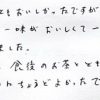 てもおいしかったですが
一味がおいしくて一
ました。
食後のお茶ととも
れちょうどよかったで